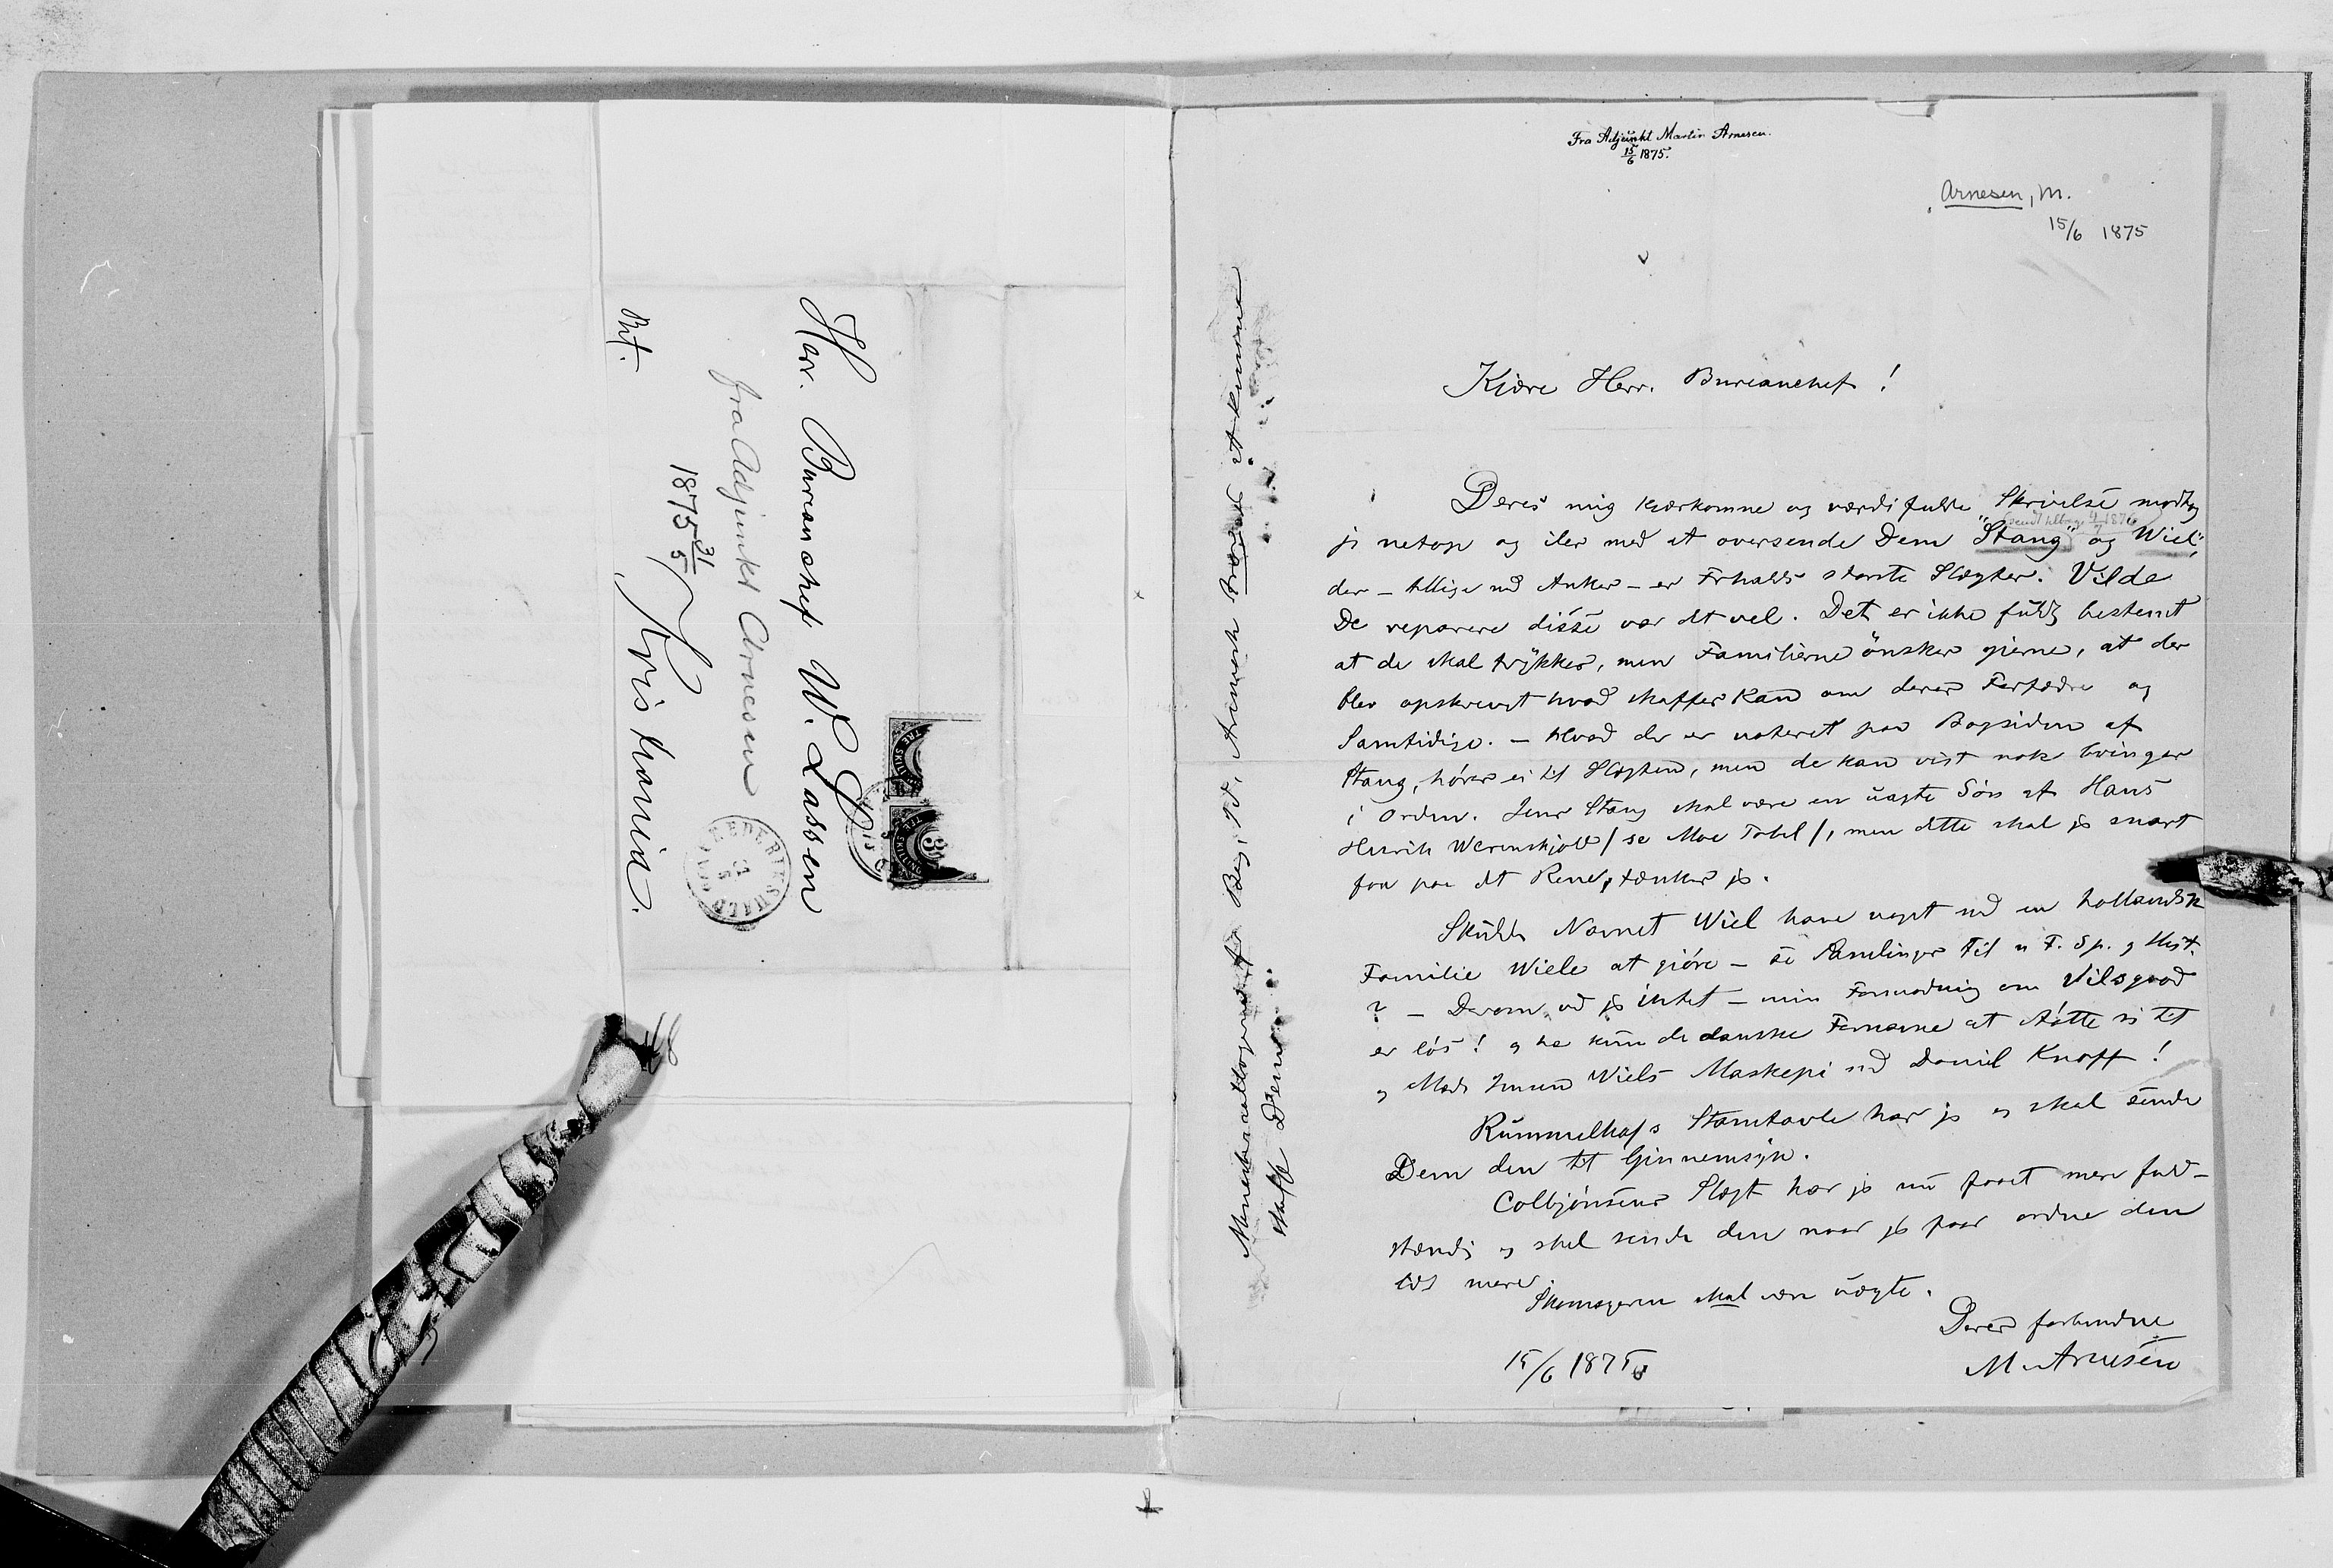 Frt.
Herr. Bureauchef W. Lassen
fra Adjunkt Arnesen
1875 31/5
Kristiania.
FREDERIKSHALD
31
5
TRE SKILLING
3
Fra Adjunkt Martin Arnesen.
15/6 1875.
Arnesen, M.
15/6 1875
Kjære Herr. Bureauchef!
Deres mig kjærkomne og værdifulde Skrivelse modtog
jeg netop og iler med at oversende Dem "Stang" og "Wiel",
der - tillige med Anker - er Frhalds største Slægter. Vilde
De reparere disse var det vel. Det er ikke fuldt bestemt
at de skal trykkes, men Familierne önsker gjerne, at der
blev opskrevet hvad skaffes kan om deres Forfædre og
Samtidige. - Hvad der er noteret paa Bagsiden af
Stang, hörer ei til Slægten, men de kan vist nok bringes
i Orden. Jens Stang skal være en uægte Sön af Hans
Henrik Werenskjold / se Moe Tabel /, men dette skal jeg snart
faa paa det Rene, tænker jeg.
Skulde Navnet Wiel have noget med en hollandsk
Familie Wiele at gjöre - se Samlinger til n. F. Sp. og Hist.
? - Derom ved jeg intet - min Formodning om Vilsgaard
er lös! og har kun de danske Fornavne at stötte sig til
og Mads Wiels Maskepi med Daniel Knoff!
Rummelhofs Stamtavle har jeg og skal sende
Dem den til Gjennemsyn.
Colbjönsens Slægt har jeg nu faaet mere fuld-
stændig og skal sende den naar jeg faar ordne den
lidt mere.
Skomageren skal være uægte.
Deres forbundne
M. Arnesen
15/6 1875
at kunne
skaffe Dem